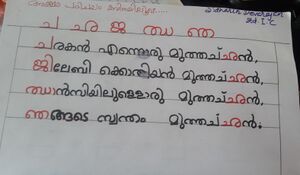 ച ഛ ജ ഝ ഞ
ചരകൻ എന്നൊരു മുത്തച്ഛൻ,
ജിലേബി ക്കൊതിയൻ മുത്തച്ഛൻ,
ഝാൻസിയിലുള്ളൊരു മുത്തച്ഛൻ,
ഞങ്ങടെ സ്വന്തം മുത്തച്ഛൻ.